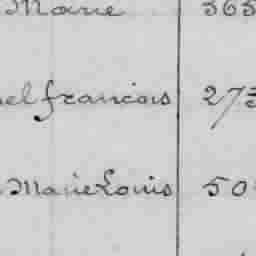 Marie 365
el francois 273
Marie Louis 50